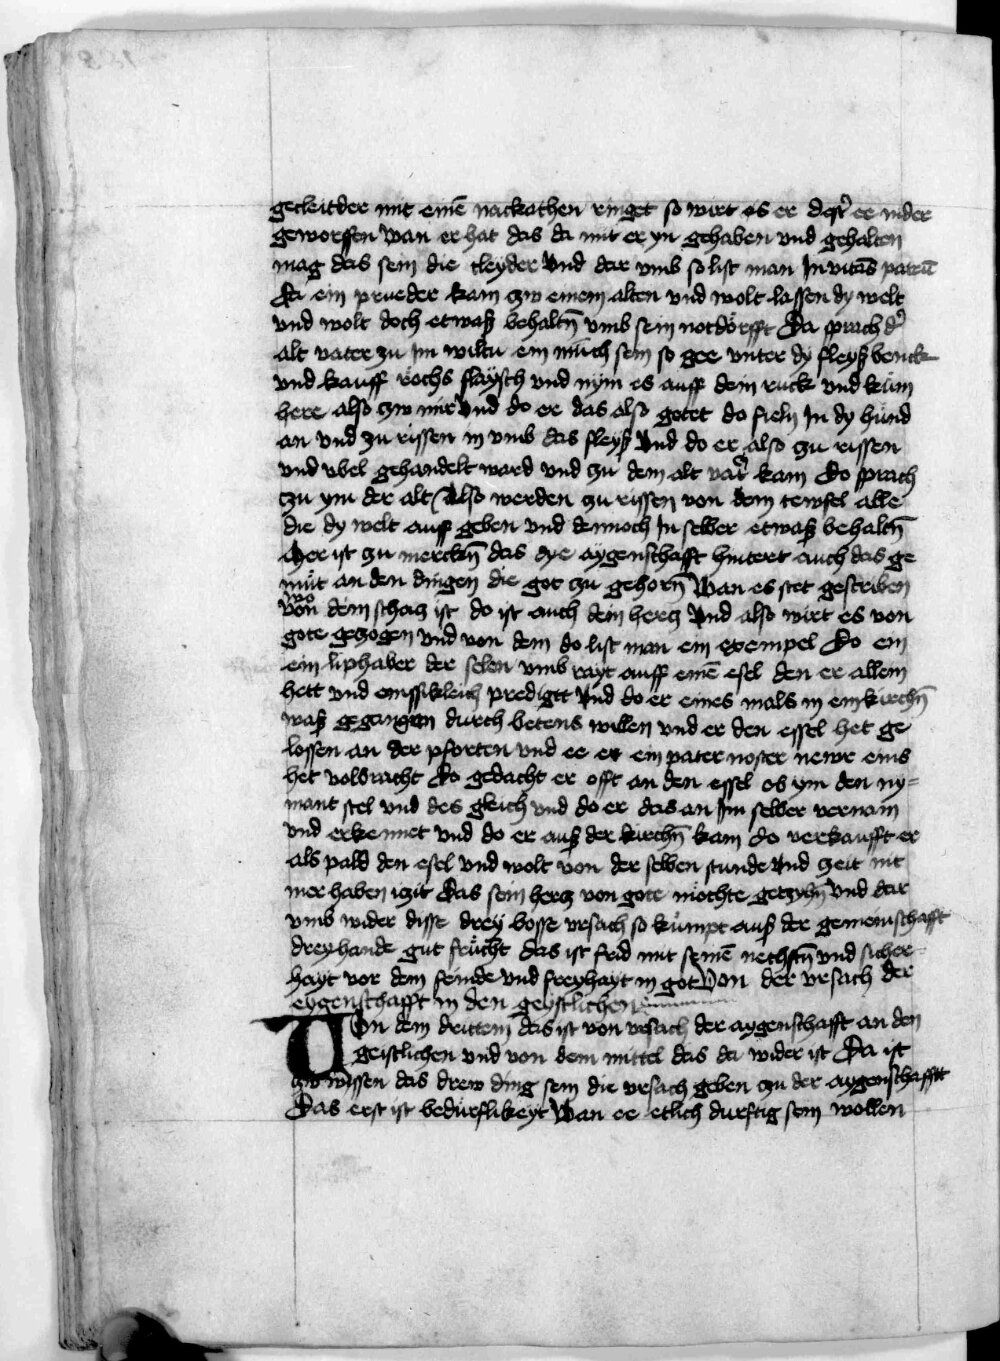 gecleitder mit einē nackathen ringet so wirt es er dest͛ er nider
geworffen Wan er hat das da mit er yn gehaben vnd gehalten
mag das sein die cleyder Vnd dar vmb so list man In vitas patrū
Da ein prueder kam zw einem alten vnd wolt lassen dy welt
vnd wolt doch etwaß behaltn̄ vmb sein notdörfft Da sprach d͛
alt vater zu im wiltu ein münch sein so gee vnter dy fleyßbenck
vnd kauff röchs flaÿsch vnd nÿm es auff dein ruck vnd küm
here also zw mir Vnd do er das also getet do fieln In dy hünd
an vnd zu rissen in vmb das fleyß Vnd do er also zu rissen
vnd vbel gehandelt ward vnd zu dem alt vat͛ kam Do sprach
zu ym der alt Also werden zu rissen von dem tewfel alle
die dy welt auff geben vnd dennoch In selber etwaß behaltn̄
Her ist zu merckn̄ das dye aygenschafft hintert auch das ge
müt an den dingen die got zu gehorn̄ Wan es stet gescriben
wo
von dein schacz ist do ist auch dein hercz Vnd also wirt es von
gote geczogen vnd von dem do list man ein exempel Do ein
ein liphaber der selen vmb rayt auff einē esel den er allein
hett vnd emssikleich predigtt Vnd do er eines mals in ein kirchn̄
waß gegangen durch betens willen vnd er den essel het ge
lossen an der pforten vnd ee er ein pater noster newr eins
het volbracht Do gedacht er offt an den essel ob ym den ny=
mant stel vnd des gleich vnd do er das an Im selber vernam
vnd erkennet vnd do er auß der kirchn̄ kam do verkaufft er
als pald den esel vnd wolt von der selben stunde Vnd zeit nit
mer haben iczit Das sein hercz von gote möchte geczyhn̄ Vnd dar
vmb wider disse drey bosse vrsach so kümpt auß der gemeinschafft
dreyhande gut frücht das ist frid mit seinē nechstn̄ vnd sicher=
hayt vor dem feinde vnd freyhayt in got Von der vrsach der
eygenschafft in den geystlichen
Von dem drittem das ist von vrsach der aygenschafft an den
geistlichen vnd von dem mittel das da wider ist Da ist
zw wissen das drew ding sein die vrsach geben zu der aygenschafft
Das erst ist bedürflikeyt Wan ee etlich durftig sein wollen